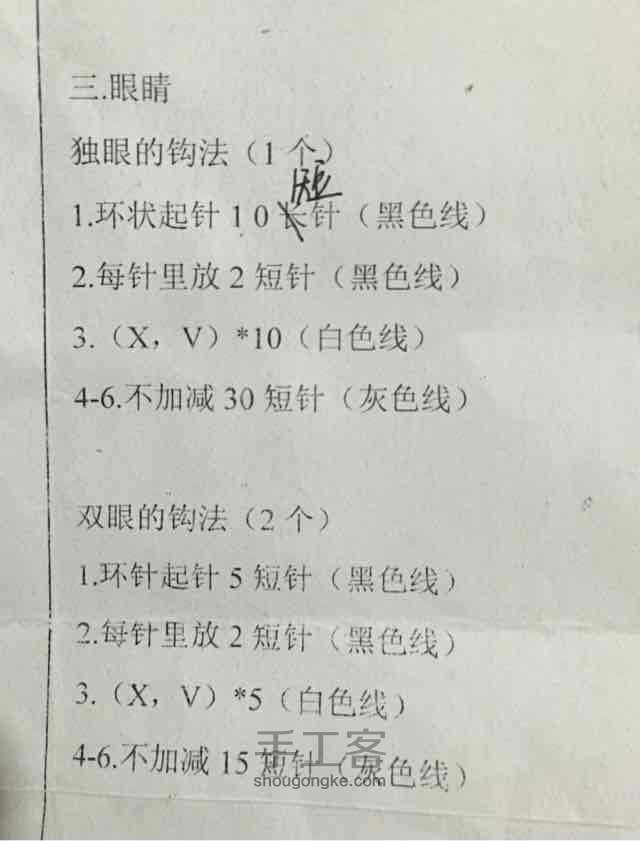 三.眼睛
独眼的钩法（1个）
短
1.环状起针10长针（黑色线）
2.每针里放2短针（黑色线）
3.（X，V）*10（白色线）
4-6.不加减30短针（灰色线）
双眼的钩法（2个）
1.环针起针5短针（黑色线）
2.每针里放2短针（黑色线）
3.（X，V）*5（白色线）
4-6.不加减15短针（灰色线）
手工客
shougongke.com